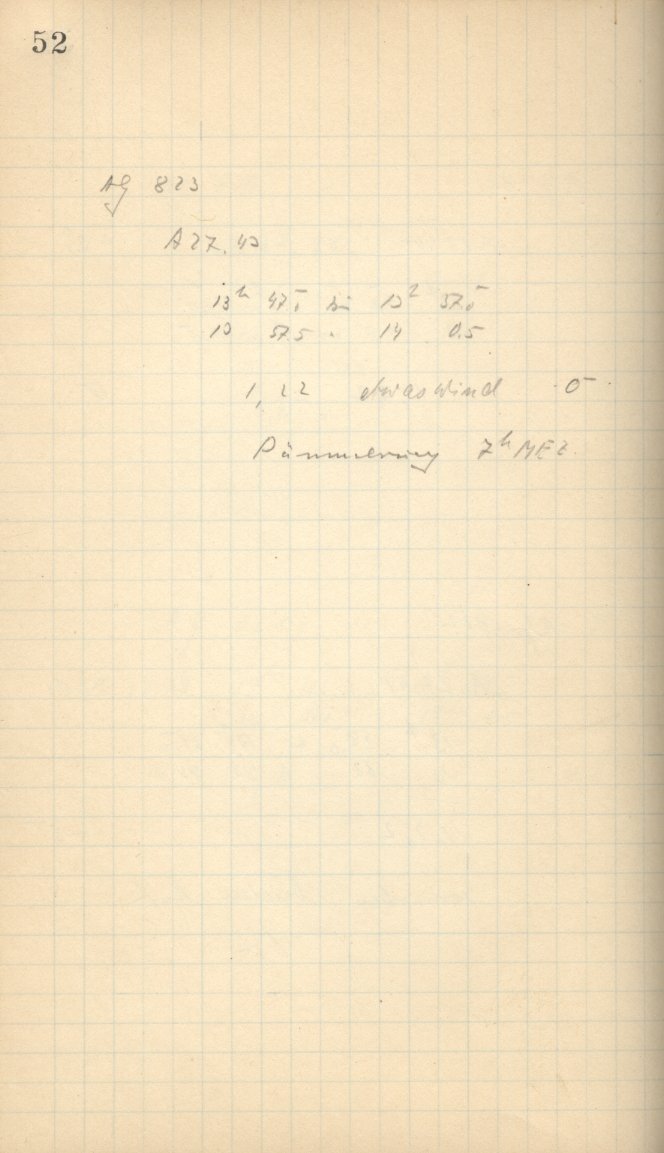 52
AG 823
A 27.43
13ʰ 47.5 bis 13ʰ 57.5
13 57.5 - 14 0.5
1,22 etwas Wind 5
Dämmerung 7ʰ MEZ.